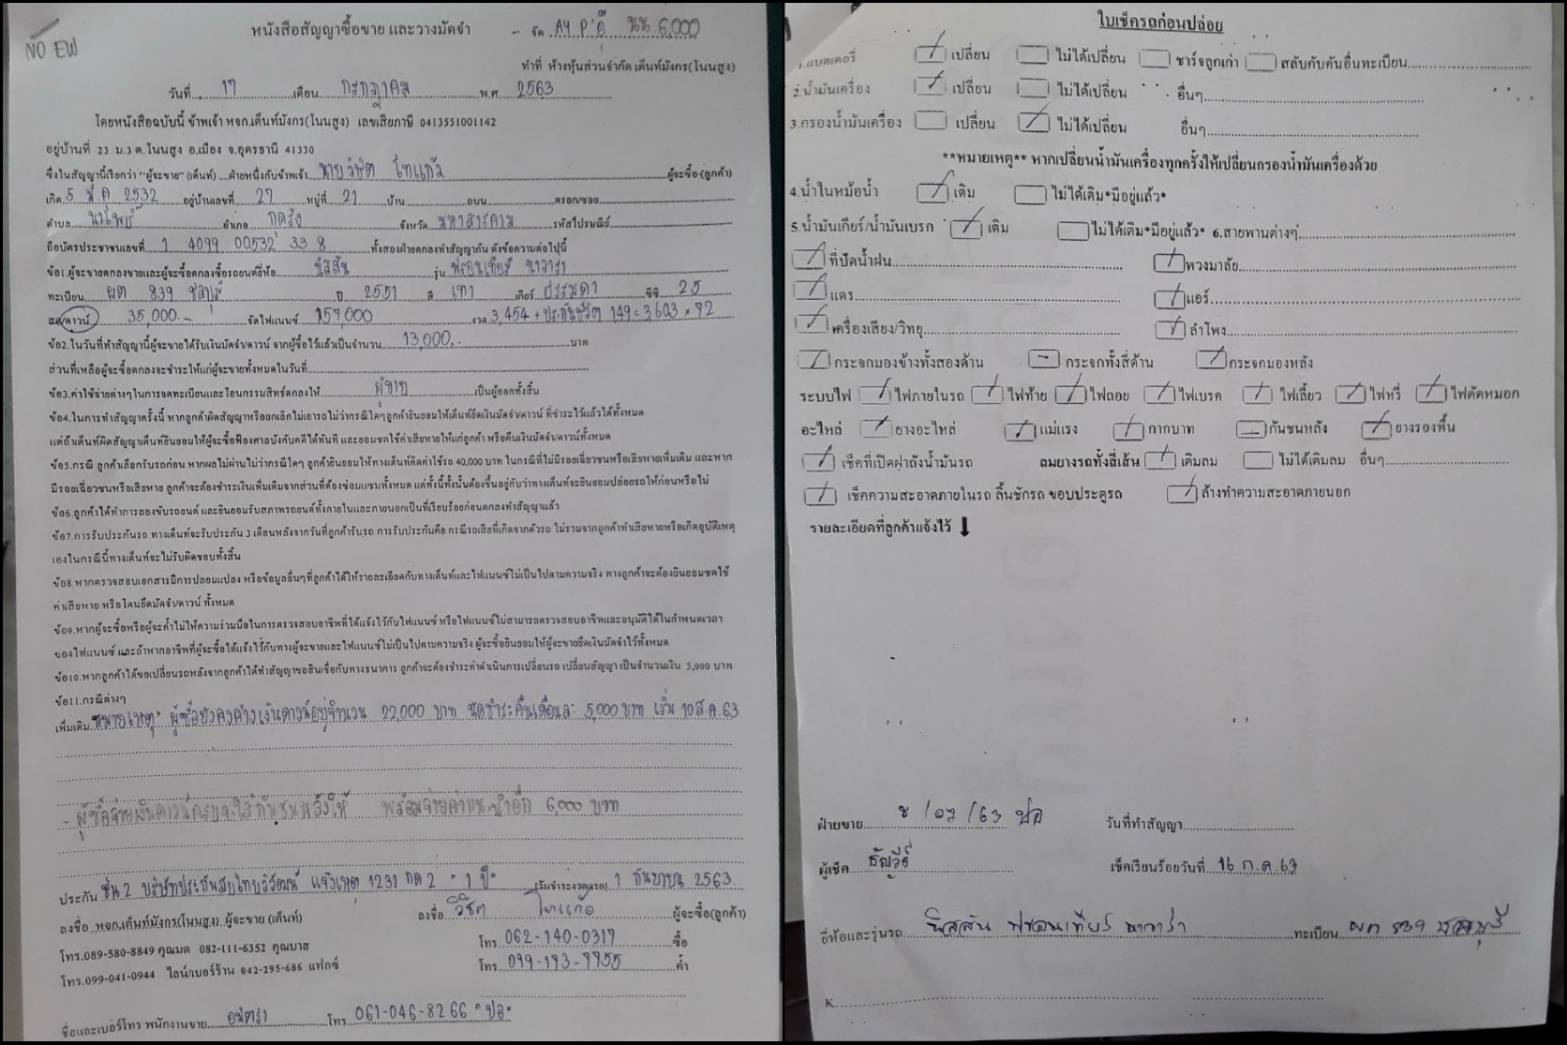 NO EW
หนังสือสัญญาซื้อขาย และวางมัดจำ - จัด AY P'อู๊ นน.6,000
ทำที่ ห้างหุ้นส่วนจำกัด เต็นท์มังกร(โนนสูง)
วันที่ 17 เดือน กรกฎาคม พ.ศ 2563
โดยหนังสือฉบับนี้ ข้าพเจ้า หจก.เต็นท์มังกร(โนนสูง) เลขเสียภาษี 0413551001142
อยู่บ้านที่ 23 ม.3 ต.โนนสูง อ.เมือง จ.อุดรธานี 41330
ซึ่งในสัญญานี้เรียกว่า "ผู้จะขาย" (เต็นท์) ฝ่ายหนึ่งกับข้าพเจ้า นายวิชิต ไทแก้ว ผู้จะซื้อ (ลูกค้า)
เกิด 5 มี.ค 2532 อยู่บ้านเลขที่ 27 หมู่ที่ 21 บ้าน ถนน ตรอก/ซอย
ตำบล นาโพธิ์ อำเภอ กุดรัง จังหวัด มหาสารคาม รหัสไปรษณีย์
ถือบัตรประชาชนเลขที่ 1 4099 00532 33 8 ทั้งสองฝ่ายตกลงทำสัญญากัน ดังข้อความต่อไปนี้
ข้อ1.ผู้จะขายตกลงขายและผู้จะซื้อตกลงซื้อรถยนต์ยี่ห้อ นิสสัน รุ่น ฟรอนเทียร์ นาวารา
ทะเบียน ผต 839 ชลบุรี ปี 2551 สี เทา เกียร์ ธรรมดา ซีซี 2.5
สด/ดาวน์ 35,000.- จัดไฟแนนซ์ 159,000 งวด 3,454 + ประกันชีวิต 149 = 3,603 × 72
ข้อ2.ในวันที่ทำสัญญานี้ผู้จะขายได้รับเงินมัดจำ/ดาวน์ จากผู้ซื้อไว้แล้วเป็นจำนวน 13,000.- บาท
ส่วนที่เหลือผู้จะซื้อตกลงจะชำระให้แก่ผู้จะขายทั้งหมดในวันที่
ข้อ3.ค่าใช้จ่ายต่างๆในการจดทะเบียนและโอนกรรมสิทธ์ตกลงให้ ผู้ขาย เป็นผู้ออกทั้งสิ้น
ข้อ4.ในการทำสัญญาครั้งนี้ หากลูกค้าผิดสัญญาหรือยกเลิกไม่เอารถไม่ว่ากรณีใดๆลูกค้ายินยอมให้เต็นท์ยึดเงินมัดจำ/ดาวน์ ที่ชำระไว้แล้วได้ทั้งหมด
แต่ถ้าเต็นท์ผิดสัญญาเต็นท์ยินยอมให้ผู้จะซื้อฟ้องศาลบังคับคดีได้ทันที และยอมชดใช้ค่าเสียหายให้แก่ลูกค้า หรือคืนเงินมัดจำ/ดาวน์ทั้งหมด
ข้อ5.กรณี ลูกค้าเลือกรับรถก่อน หากผลไม่ผ่านไม่ว่ากรณีใดๆ ลูกค้ายินยอมให้ทางเต็นท์คิดค่าใช้รถ 40,000 บาท ในกรณีที่ไม่มีรอยเฉี่ยวชนหรือเสียหายเพิ่มเติม และหาก
มีรอยเฉี่ยวชนหรือเสียหาย ลูกค้าจะต้องชำระเงินเพิ่มเติมจากส่วนที่ต้องซ่อมแซมทั้งหมด แต่ทั้งนี้ทั้งนั้นต้องขึ้นอยู่กับว่าทางเต็นท์จะยินยอมปล่อยรถให้ก่อนหรือไม่
ข้อ6.ลูกค้าได้ทำการลองขับรถยนต์ และยินยอมรับสภาพรถยนต์ทั้งภายในและภายนอกเป็นที่เรียบร้อยก่อนตกลงทำสัญญาแล้ว
ข้อ7.การรับประกันรถ ทางเต็นท์จะรับประกัน 3 เดือนหลังจากวันที่ลูกค้ารับรถ การรับประกันคือ กรณีรถเสียที่เกิดจากตัวรถ ไม่รวมจากลูกค้าทำเสียหายหรือเกิดอุบัติเหตุ
เองในกรณีนี้ทางเต็นท์จะไม่รับผิดชอบทั้งสิ้น
ข้อ8.หากตรวจสอบเอกสารมีการปลอมแปลง หรือข้อมูลอื่นๆที่ลูกค้าได้ให้รายละเอียดกับทางเต็นท์และไฟแนนซ์ไม่เป็นไปตามความจริง ทางลูกค้าจะต้องยินยอมชดใช้
ค่าเสียหาย หรือโดนยึดมัดจำ/ดาวน์ ทั้งหมด
ข้อ9.หากผู้จะซื้อหรือผู้จะค้ำไม่ให้ความร่วมมือในการตรวจสอบอาชีพที่ได้แจ้งไว้กับไฟแนนซ์ หรือไฟแนนซ์ไม่สามารถตรวจสอบอาชีพและอนุมัติได้ในกำหนดเวลา
ของไฟแนนซ์ และถ้าหากอาชีพที่ผู้จะซื้อได้แจ้งไว้กับทางผู้จะขายและไฟแนนซ์ไม่เป็นไปตามความจริง ผู้จะซื้อยินยอมให้ผู้จะขายยึดเงินมัดจำไว้ทั้งหมด
ข้อ10.หากลูกค้าได้ขอเปลี่ยนรถหลังจากลูกค้าได้ทำสัญญาขอสินเชื่อกับทางธนาคาร ลูกค้าจะต้องชำระค่าดำเนินการเปลี่ยนรถ เปลี่ยนสัญญา เป็นจำนวนเงิน 5,000 บาท
ข้อ11.กรณีต่างๆ
เพิ่มเติม หมายเหตุ* ผู้ซื้อยังคงค้างเงินดาวน์อยู่จำนวน 22,000 บาท นัดชำระคืนเดือนละ 5,000 บาท เริ่ม 10 ส.ค.63
- ผู้ซื้อจ่ายเงินดาวน์ครบจะใส่กันชนหลังให้ พร้อมจ่ายค่าแนะนำอีก 6,000 บาท
ประกัน ชั้น 2 บริษัทประกันภัยไทยวิวัฒน์ แจ้งเหตุ 1231 กด 2 * 1 ปี* (วันชำระงวดแรก) 1 กันยายน 2563
ลงชื่อ หจก.เต็นท์มังกร(โนนสูง) ผู้จะขาย (เต็นท์) ลงชื่อ วิชิต ไทแก้ว ผู้จะซื้อ(ลูกค้า)
โทร.089-580-8849 คุณมด 082-111-6352 คุณบาส โทร 062-140-0317 ซื้อ
โทร.099-041-0944 ไลน์/เบอร์ร้าน 042-295-686 แฟกซ์ โทร 099-193-9955 ค้ำ
ชื่อและเบอร์โทร พนักงานขาย โทร 061-046-8266 "ปอ"
ใบเช็ครถก่อนปล่อย
1.แบตเตอรี่ เปลี่ยน ไม่ได้เปลี่ยน ชาร์จลูกเก่า สลับกับคันอื่นทะเบียน
2.น้ำมันเครื่อง เปลี่ยน ไม่ได้เปลี่ยน อื่นๆ
3.กรองน้ำมันเครื่อง เปลี่ยน ไม่ได้เปลี่ยน อื่นๆ
**หมายเหตุ** หากเปลี่ยนน้ำมันเครื่องทุกครั้งให้เปลี่ยนกรองน้ำมันเครื่องด้วย
4.น้ำในหม้อน้ำ เติม ไม่ได้เติม*มีอยู่แล้ว*
5.น้ำมันเกียร์/น้ำมันเบรก เติม ไม่ได้เติม*มีอยู่แล้ว* 6.สายพานต่างๆ
ที่ปัดน้ำฝน พวงมาลัย
แตร แอร์
เครื่องเสียง/วิทยุ ลำโพง
กระจกมองข้างทั้งสองด้าน กระจกทั้งสี่ด้าน กระจกมองหลัง
ระบบไฟ ไฟภายในรถ ไฟท้าย ไฟถอย ไฟเบรค ไฟเลี้ยว ไฟหรี่ ไฟตัดหมอก
อะไหล่ ยางอะไหล่ แม่แรง กากบาท กันชนหลัง ยางรองพื้น
เช็คที่เปิดฝาถังน้ำมันรถ ลมยางรถทั้งสี่เส้น เติมลม ไม่ได้เติมลม อื่นๆ
เช็คความสะอาดภายในรถ ลิ้นชักรถ ขอบประตูรถ ล้างทำความสะอาดภายนอก
รายละเอียดที่ลูกค้าแจ้งไว้ ↓
ฝ่ายขาย 8 /07 /63 ปอ วันที่ทำสัญญา
ผู้เช็ค เช็คเรียบร้อยวันที่ 16 ก.ค.63
ยี่ห้อและรุ่นรถ นิสสัน ฟรอนเทียร์ นาวาร่า ทะเบียน ผต 839 ชลบุรี
K